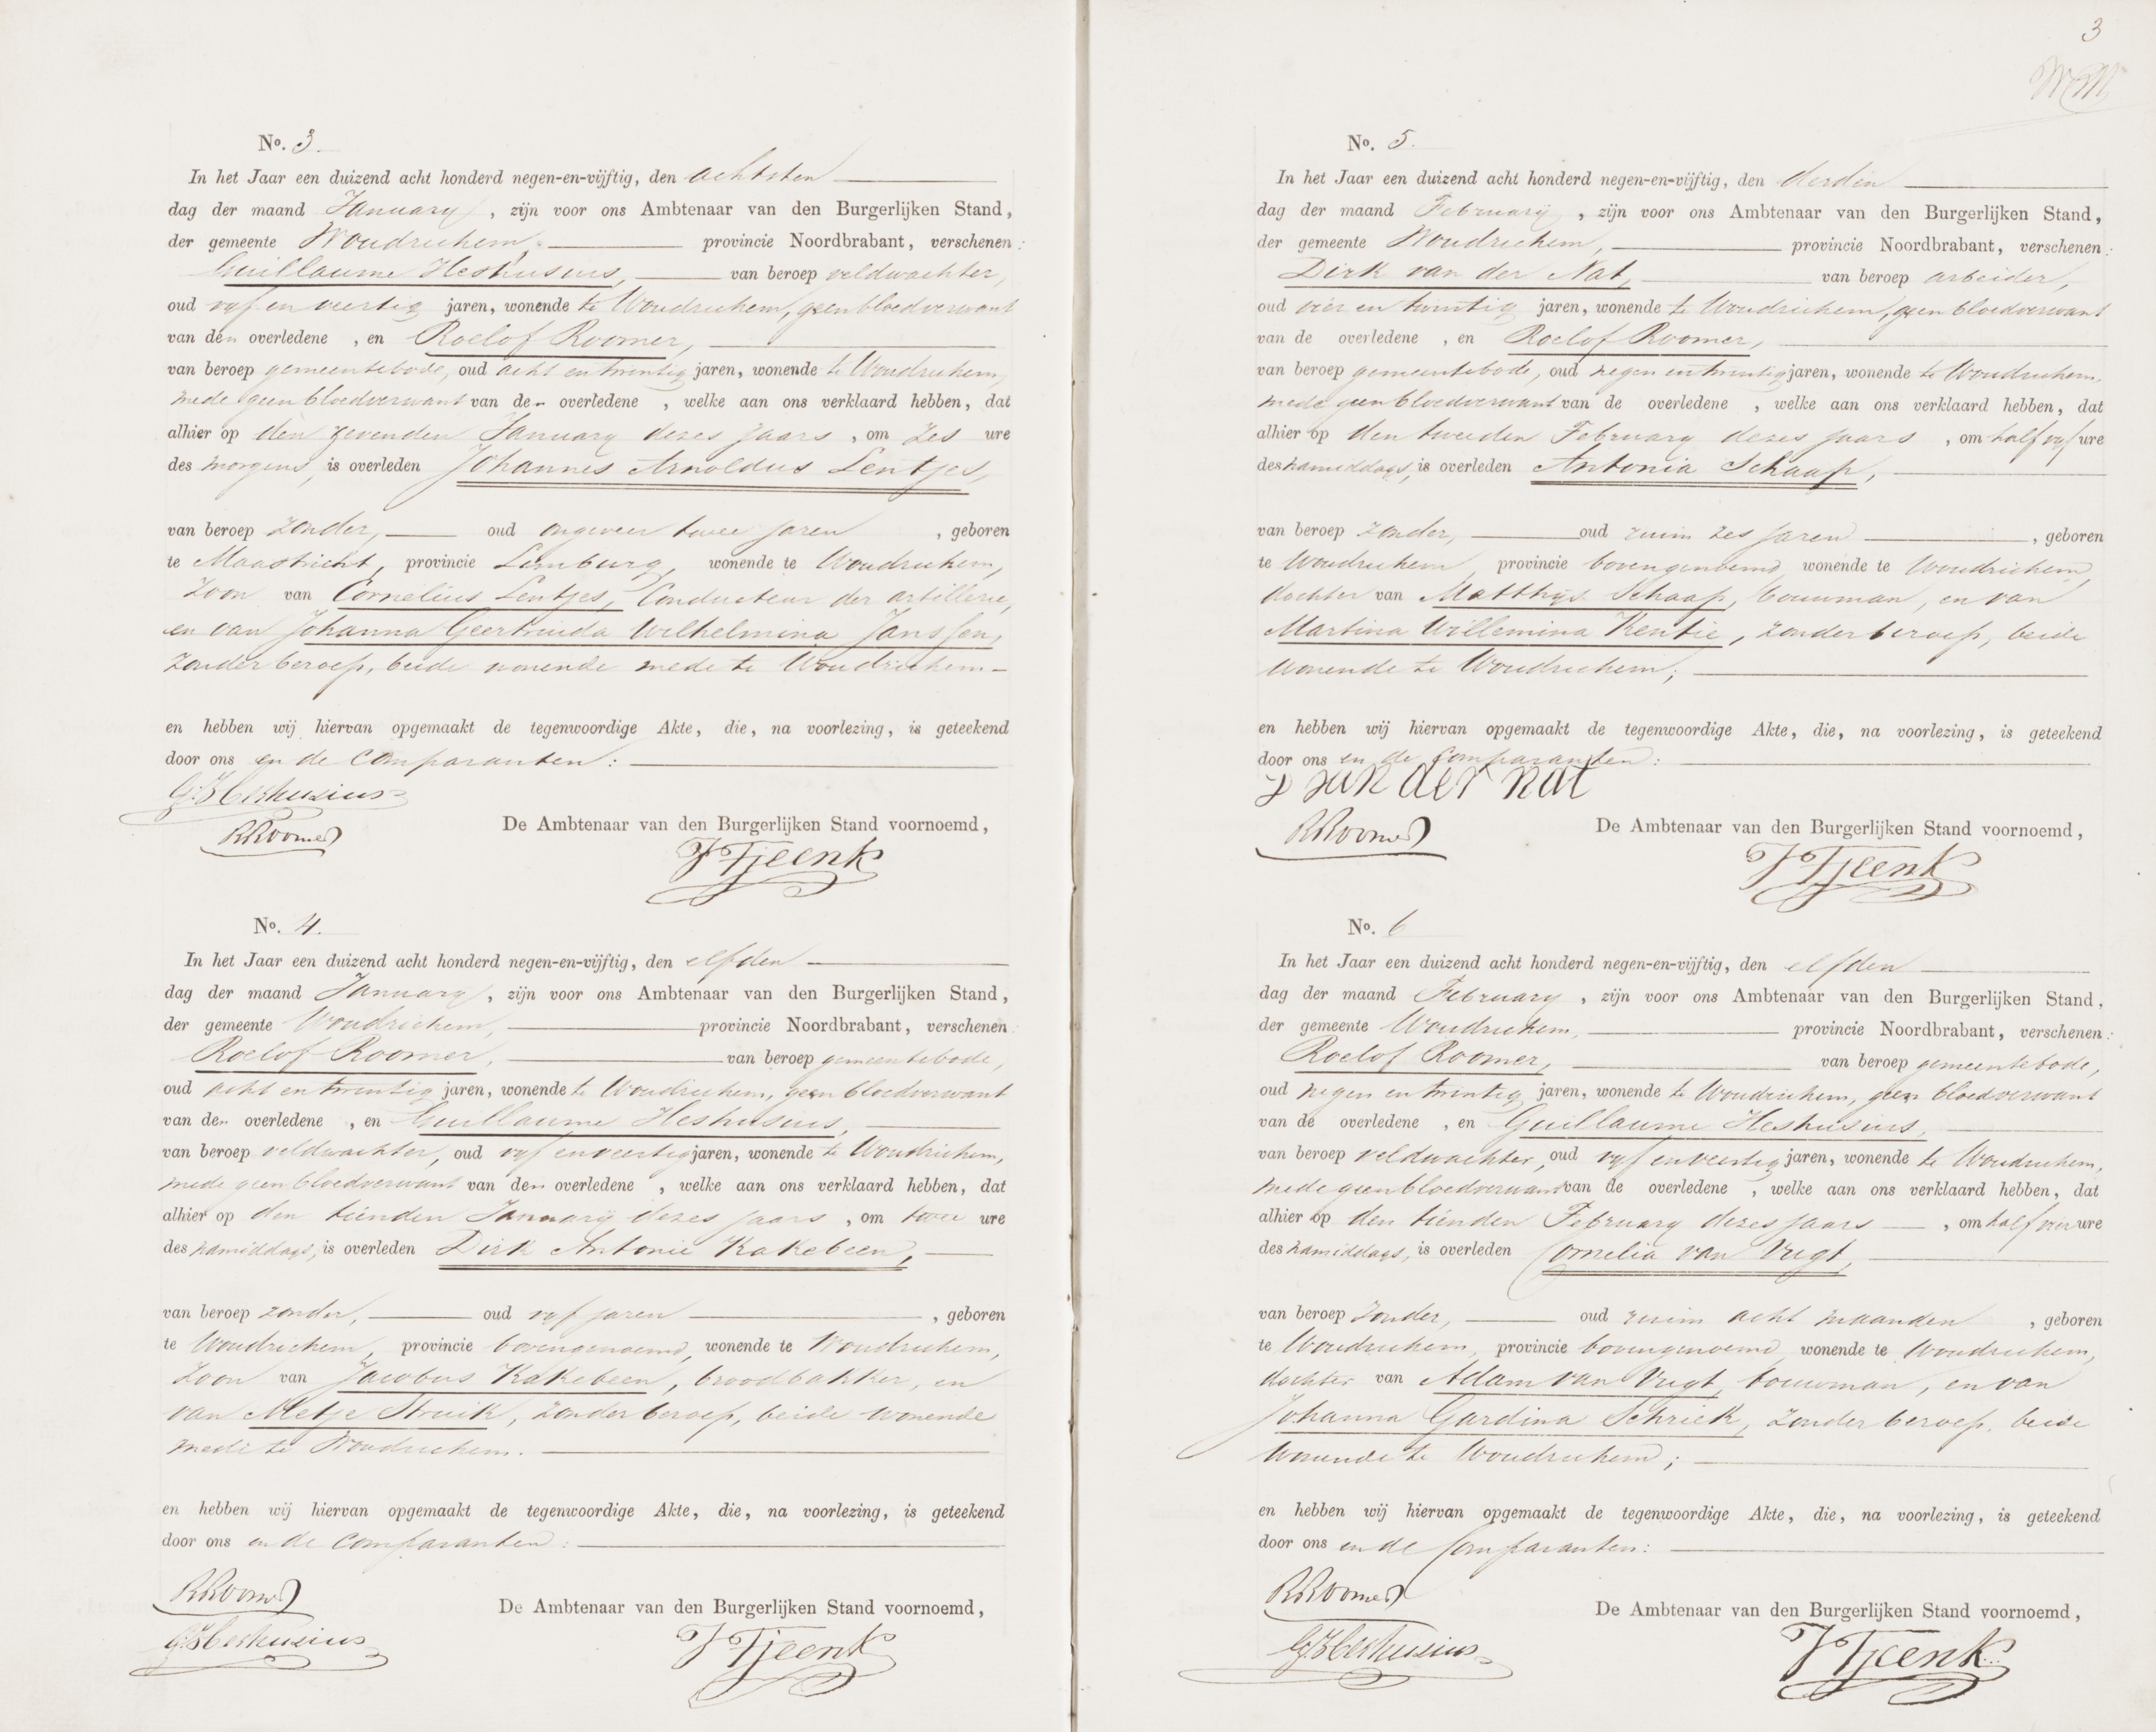 No. 3
In het Jaar een duizend acht honderd negen-en-vijftig, den achtsten
dag der maand January, zijn voor ons Ambtenaar van den Burgerlijken Stand,
der gemeente Woudrichem, provincie Noordbrabant, verschenen:
Guillaume Heshusius, van beroep veldwachter,
oud vyf en veertig jaren, wonende te Woudrichem, geen bloedverwant
van den overledene, en Roelof Roomer,
van beroep gemeentebode, oud acht en twintig jaren, wonende te Woudrichem,
mede geen bloedverwant van den overledene, welke aan ons verklaard hebben, dat
alhier op den zevenden January dezes jaars, om zes ure
des morgens, is overleden Johannes Arnoldus Lentjes,
van beroep zonder, oud ongeveer twee jaren, geboren
te Maastricht, provincie Limburg, wonende te Woudrichem,
zoon van Cornelius Lentjes, Conducteur der artillerie,
en van Johanna Geertruida Wilhelmina Janssen,
zonder beroep, beide wonende mede te Woudrichem
en hebben wij hiervan opgemaakt de tegenwoordige Akte, die, na voorlezing, is geteekend
door ons en de Comparanten:
G. Heshusius
RRoomer
De Ambtenaar van den Burgerlijken Stand voornoemd,
J Tjeenk
No. 4.
In het Jaar een duizend acht honderd negen-en-vijftig, den elfden
dag der maand January, zijn voor ons Ambtenaar van den Burgerlijken Stand,
der gemeente Woudrichem, provincie Noordbrabant, verschenen
Roelof Roomer, van beroep gemeentebode,
oud acht en twintig jaren, wonende te Woudrichem, geen bloedverwant
van den overledene, en Guillaume Heshusius,
van beroep veldwachter, oud vyf en veertig jaren, wonende te Woudrichem,
mede geen bloedverwant van den overledene, welke aan ons verklaard hebben, dat
alhier op den tienden January dezes jaars, om twee ure
des namiddags, is overleden Dirk Antonie Kakebeen,
van beroep zonder, oud vyf jaren, geboren
te Woudrichem, provincie bovengenoemd, wonende te Woudrichem,
zoon van Jacobus Kakebeen, broodbakker, en
van Metje Struik, zonder beroep, beide wonende
mede te Woudrichem.
en hebben wij hiervan opgemaakt de tegenwoordige Akte, die, na voorlezing, is geteekend
door ons en de Comparanten:
RRoomer
G. Heshusius
De Ambtenaar van den Burgerlijken Stand voornoemd,
J Tjeenk
3
No. 5.
In het Jaar een duizend acht honderd negen-en-vijftig, den derden
dag der maand February, zijn voor ons Ambtenaar van den Burgerlijken Stand,
der gemeente Woudrichem, provincie Noordbrabant, verschenen:
Dirk van der Nat, van beroep arbeider,
oud vier en twintig jaren, wonende te Woudrichem, geen bloedverwant
van de overledene, en Roelof Roomer,
van beroep gemeentebode, oud negen en twintig jaren, wonende te Woudrichem,
mede geen bloedverwant van de overledene, welke aan ons verklaard hebben, dat
alhier op den tweeden February dezes jaars, om half vyf ure
des namiddags, is overleden Antonia Schaap,
van beroep zonder, oud ruim zes jaren, geboren
te Woudrichem, provincie bovengenoemd wonende te Woudrichem,
dochter van Matthijs Schaap, bouwman, en van
Martina Willemina Kentie, zonder beroep, beide
wonende te Woudrichem;
en hebben wij hiervan opgemaakt de tegenwoordige Akte, die, na voorlezing, is geteekend
door ons en de Comparanten:
D van der nat
RRoomer
De Ambtenaar van den Burgerlijken Stand voornoemd,
J Tjeenk
No. 6
In het Jaar een duizend acht honderd negen-en-vijftig, den elfden
dag der maand February, zijn voor ons Ambtenaar van den Burgerlijken Stand,
der gemeente Woudrichem, provincie Noordbrabant, verschenen:
Roelof Roomer, van beroep gemeentebode,
oud negen en twintig jaren, wonende te Woudrichem, geen bloedverwant
van de overledene, en Guillaume Heshusius,
van beroep veldwachter, oud vyf en veertig jaren, wonende te Woudrichem,
mede geen bloedverwant van de overledene, welke aan ons verklaard hebben, dat
alhier op den tienden February dezes jaars, om half vier ure
des namiddags, is overleden Cornelia van Vugt,
van beroep zonder, oud ruim acht maanden, geboren
te Woudrichem, provincie bovengenoemd wonende te Woudrichem,
dochter van Adam van Vugt, bouwman, en van
Johanna Gardina Schriek, zonder beroep, beide
wonende te Woudrichem;
en hebben wij hiervan opgemaakt de tegenwoordige Akte, die, na voorlezing, is geteekend
door ons en de Comparanten:
RRoomer
G. Heshusius
De Ambtenaar van den Burgerlijken Stand voornoemd,
J Tjeenk